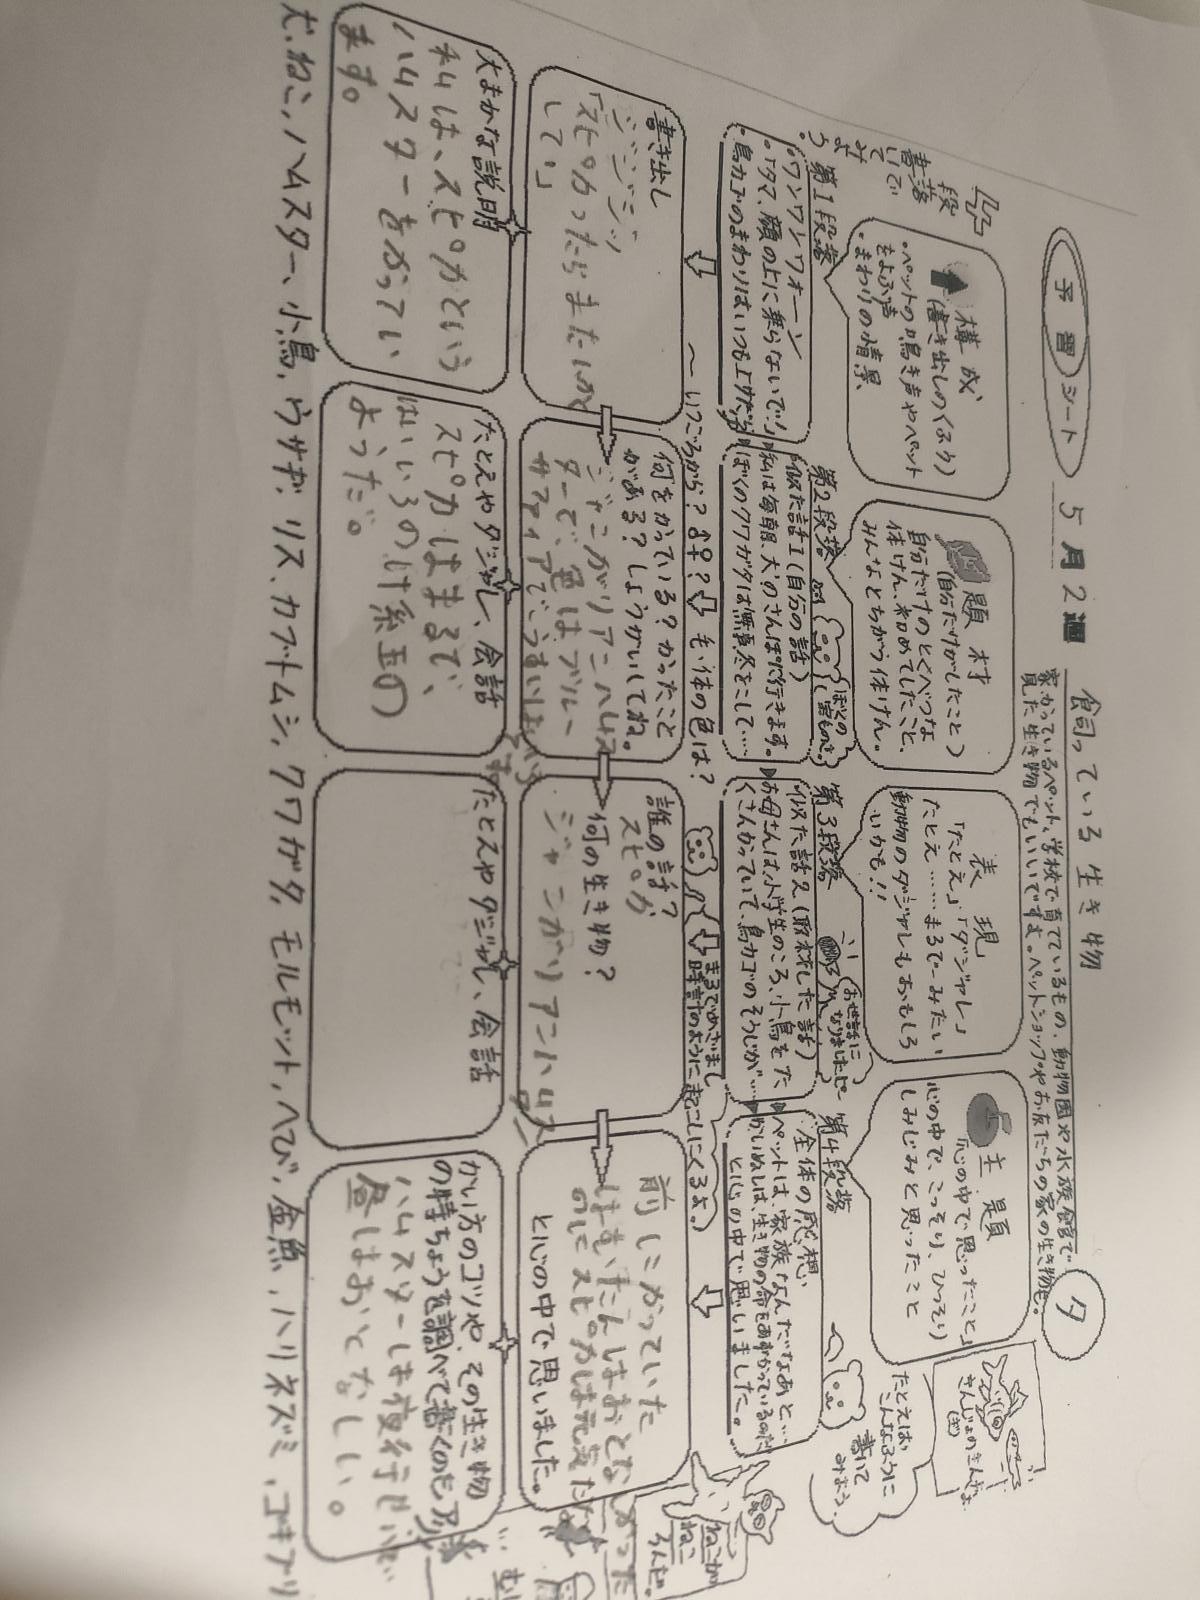 予習シート
5月2週
飼っている生き物
家でかっているペット、学校で育てているもの、動物園や水族館で
見た生き物でもいいですよ。ペットショップやお友だちの家の生き物も。
タ
構成
(書き出しのくふう)
・ペットの鳴き声やペット
をよぶ声
・まわりの情景
題材
(自分だけがしたこと)
自分だけのとくべつな
体けん、初めてしたこと、
みんなとちがう体けん。
表現
「たとえ」「ダジャレ」
たとえ……まるで〜みたい
動物のダジャレもおもしろ
いかも!!
主題
「心の中で思ったこと」
心の中で、こっそり、ひっそり
しみじみと思ったこと
きんじょのきんぎょ
段落
書いて
みよう
第1段落
・ワンワンワオーン
・「タマ、顔の上に乗らないで!」
・鳥カゴのまわりはいつも
第2段落
似た話1(自分の話)
私は毎朝、犬のさんぽに行きます。
ぼくのクワガタは無事冬をこして……
ぼくの
宝もの
第3段落
似た話2(取材した話)
お母さんは小学生のころ、小鳥をた
くさんかっていて、鳥カゴのそうじが…
お世話に
なりました
第4段落
全体の感想
ペットは、家族なんだなあと…
かいぬしは、生き物の命をあずかっているのだ
と心の中で思いました。
たとえば
こんなふうに
書いて
みよう
〜いつごろから?♂♀?
毛、体の色は?
まるでめざまし
時計のように起こしにくるよ。
ねこが
ねこ
ろんだ。
書き出し
ジジジジッ
「スピカったらまたなめ
して」
何をかっている?かったこと
がある?しょうかいしてね。
ジャンガリアンハムス
ターで、色は、ブルー
サファイアでうすいはいいろ
です
誰の話?
スピカ
何の生き物?
ジャンガリアンハムス
ター
前にかっていた
はずいたんはおとなしかった
のにスピカは元気だな
と心の中で思いました。
大まかな説明
私は、スピカという
ハムスターをかってい
ます。
たとえやダジャレ、会話
スピカはまるで、
はいいろの毛糸玉の
ようだ。
たとえやダジャレ、会話
かい方のコツや、その生き物
の特ちょうを調べて書くのもアリ
ハムスターは夜行性で
昼はおとなしい。
犬、ねこ、ハムスター、小鳥、ウサギ、リス、カブトムシ、クワガタ、モルモット、ヘビ、金魚、ハリネズミ、ゴキブリ